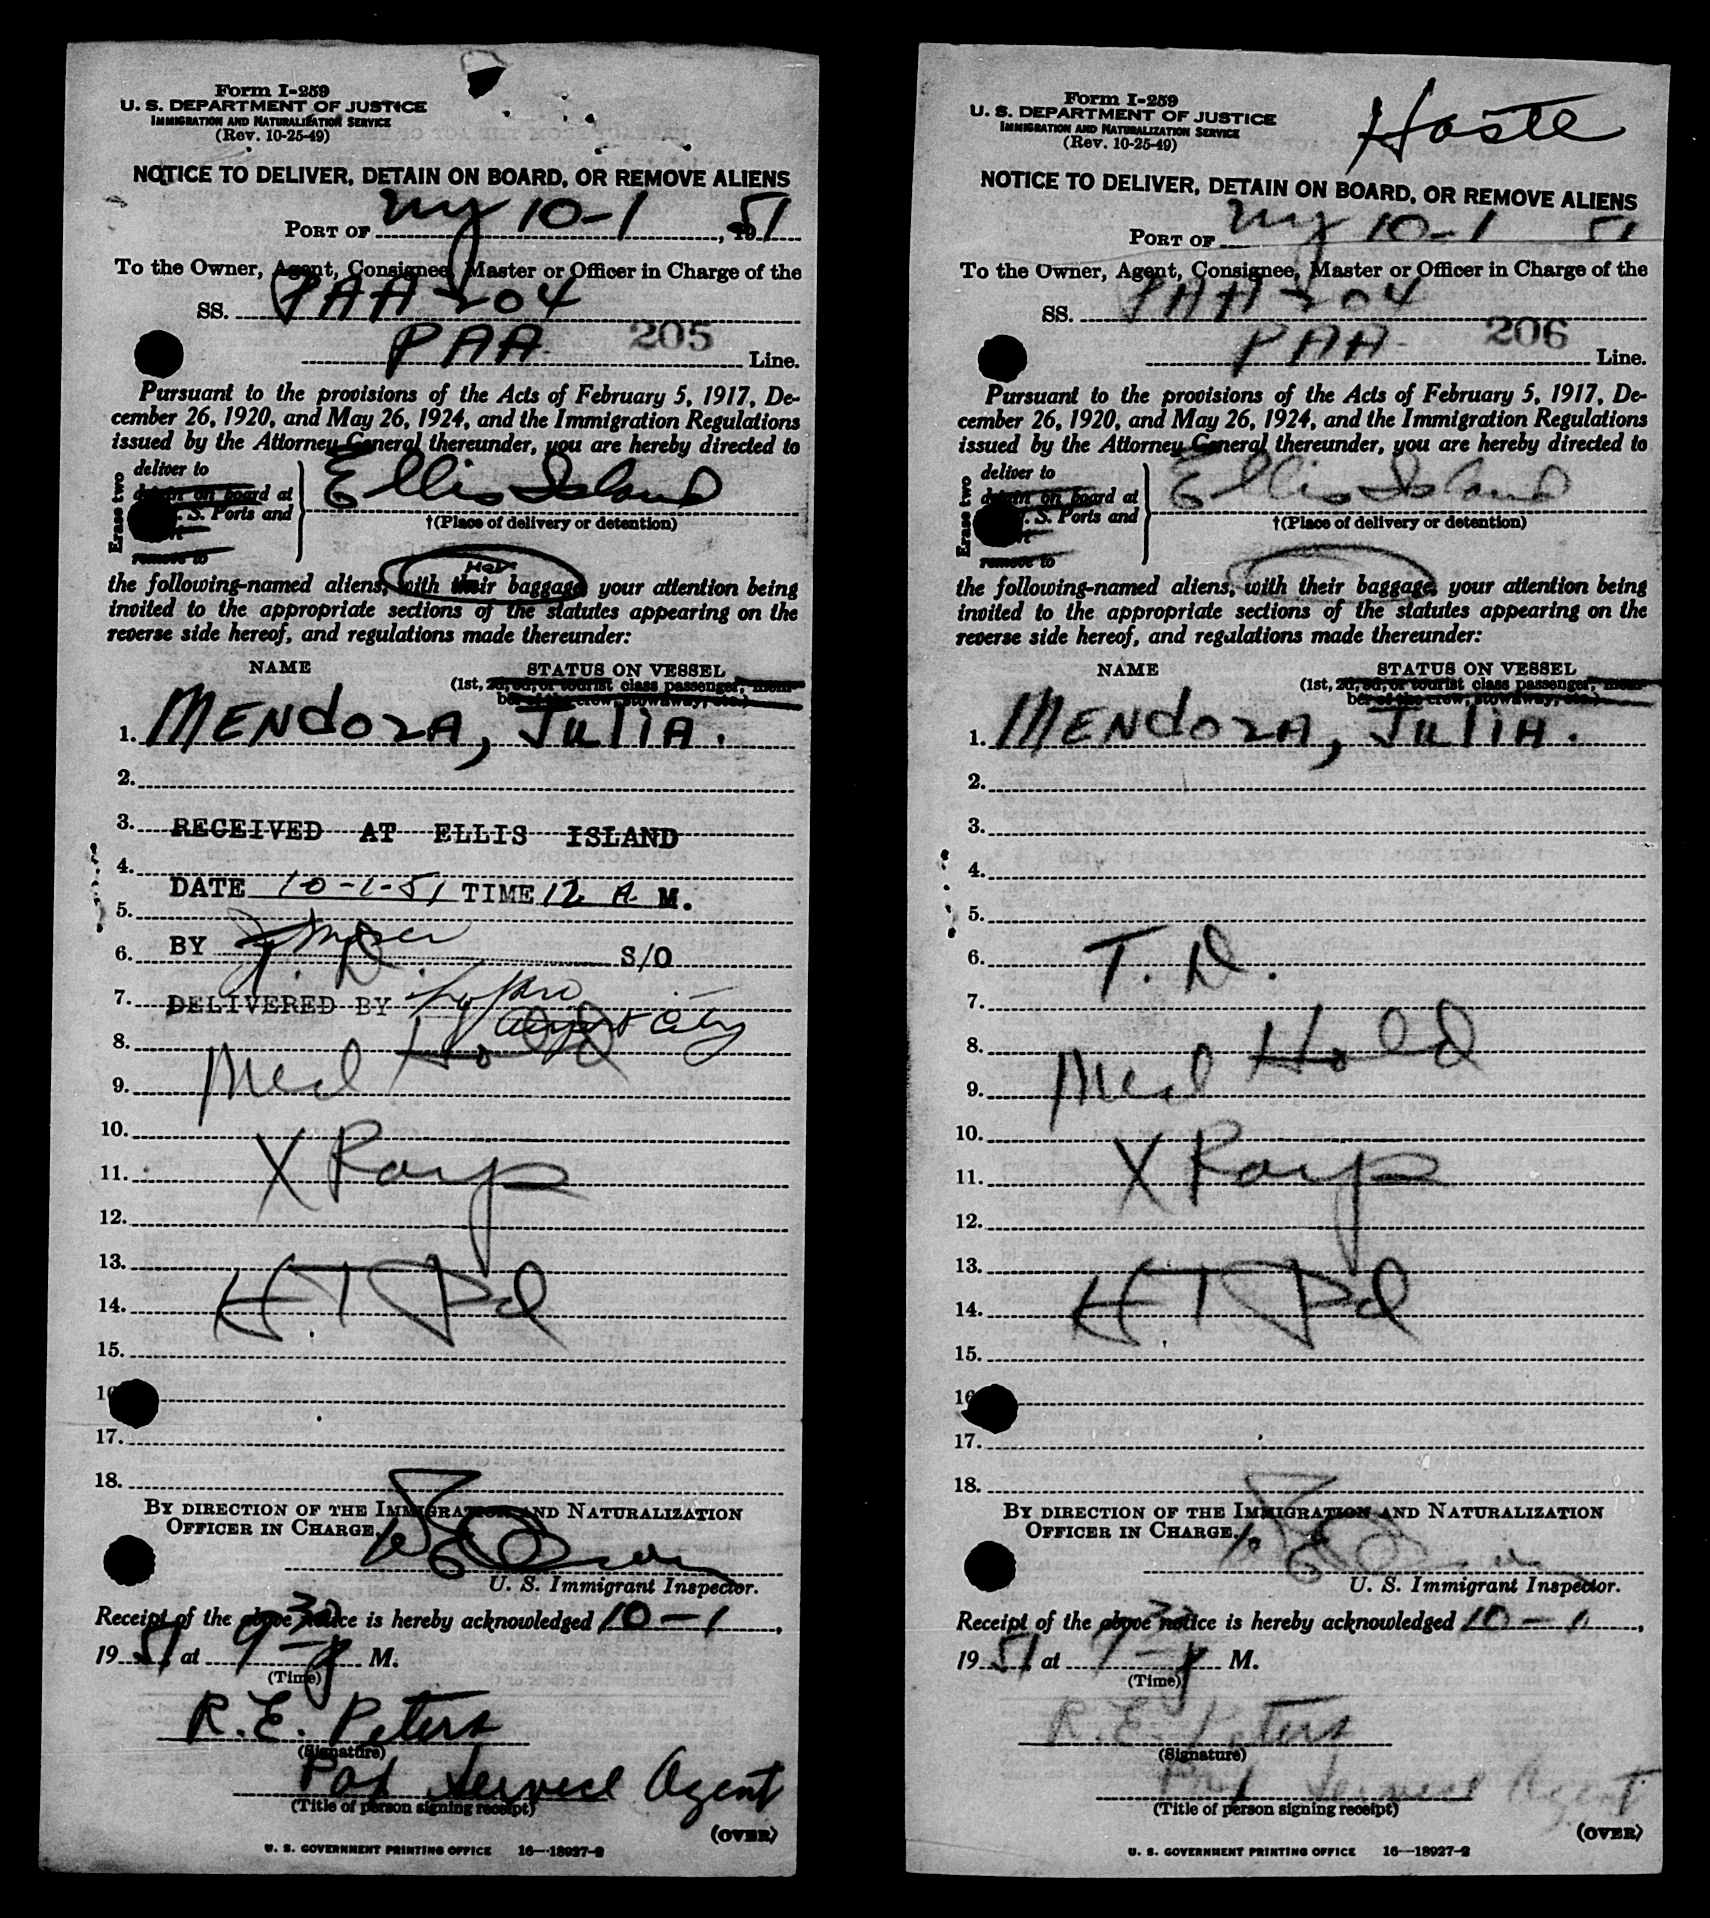 Form I-259
U. S. DEPARTMENT OF JUSTICE
IMMIGRATION AND NATURALIZATION SERVICE
(Rev. 10-25-49)
NOTICE TO DELIVER, DETAIN ON BOARD, OR REMOVE ALIENS
PORT OF NY 10-1, 1951
To the Owner, Agent, Consignee, Master or Officer in Charge of the
SS. PAA-204
205
PAA Line.
Pursuant to the provisions of the Acts of February 5, 1917, De-
cember 26, 1920, and May 26, 1924, and the Immigration Regulations
issued by the Attorney General thereunder, you are hereby directed to
Erase two
deliver to
detain on board at
S. Ports and
remove to
Ellis Island
†(Place of delivery or detention)
the following-named aliens, with their baggage, your attention being
invited to the appropriate sections of the statutes appearing on the
reverse side hereof, and regulations made thereunder:
NAME STATUS ON VESSEL
(1st, 2d, 3d, or tourist class passenger, mem-
ber of the crew, stowaway, etc.)
1. MENDOZA, JULIA.
2.
3. RECEIVED AT ELLIS ISLAND
4.
DATE 10-1-51 TIME 12 A M.
5.
6. BY S/O
T. D.
7. DELIVERED BY
8.
Med Hold
9.
10.
11. X Ray
12.
13.
14. H.T. Pd
15.
16
17.
18.
BY DIRECTION OF THE IMMIGRATION AND NATURALIZATION
OFFICER IN CHARGE.
U. S. Immigrant Inspector.
Receipt of the above notice is hereby acknowledged 10-1,
1951 at 9 30 M.
(Time)
R.E. Peters
(Signature)
Service Agent
(Title of person signing receipt)
(OVER)
U. S. GOVERNMENT PRINTING OFFICE 16—18927-2
Form I-259
U. S. DEPARTMENT OF JUSTICE
IMMIGRATION AND NATURALIZATION SERVICE
(Rev. 10-25-49)
NOTICE TO DELIVER, DETAIN ON BOARD, OR REMOVE ALIENS
PORT OF NY 10-1 51
To the Owner, Agent, Consignee, Master or Officer in Charge of the
SS. PAA-204
206
PAA Line.
Pursuant to the provisions of the Acts of February 5, 1917, De-
cember 26, 1920, and May 26, 1924, and the Immigration Regulations
issued by the Attorney General thereunder, you are hereby directed to
Erase two
deliver to
detain on board at
S. Ports and
remove to
Ellis Island
†(Place of delivery or detention)
the following-named aliens, with their baggage, your attention being
invited to the appropriate sections of the statutes appearing on the
reverse side hereof, and regulations made thereunder:
NAME STATUS ON VESSEL
(1st, 2d, 3d, or tourist class passenger, mem-
ber of the crew, stowaway, etc.)
1. MENDOZA, JULIA.
2.
3.
4.
5.
6. T. D.
7.
8.
Med Hold
9.
10.
11. X Ray
12.
13.
14. H.T. Pd
15.
16
17.
18.
BY DIRECTION OF THE IMMIGRATION AND NATURALIZATION
OFFICER IN CHARGE.
U. S. Immigrant Inspector.
Receipt of the above notice is hereby acknowledged 10-1,
1951 at 9 30 M.
(Time)
R.E. Peters
(Signature)
Service Agent
(Title of person signing receipt)
(OVER)
U. S. GOVERNMENT PRINTING OFFICE 16—18927-2